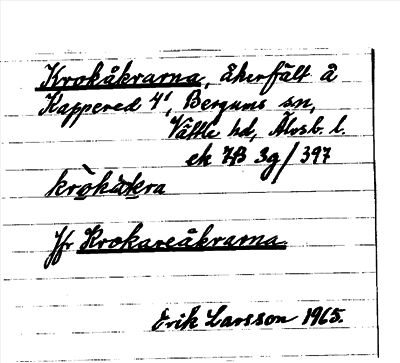 Krokåkrarna, åkerfält å
Kappered 4¹, Bergums sn,
Vättle hd, Älvsb. l.
ek 7B 3g/397
kròkåkra
Jfr Krokareåkrarna.
Erik Larsson 1965.